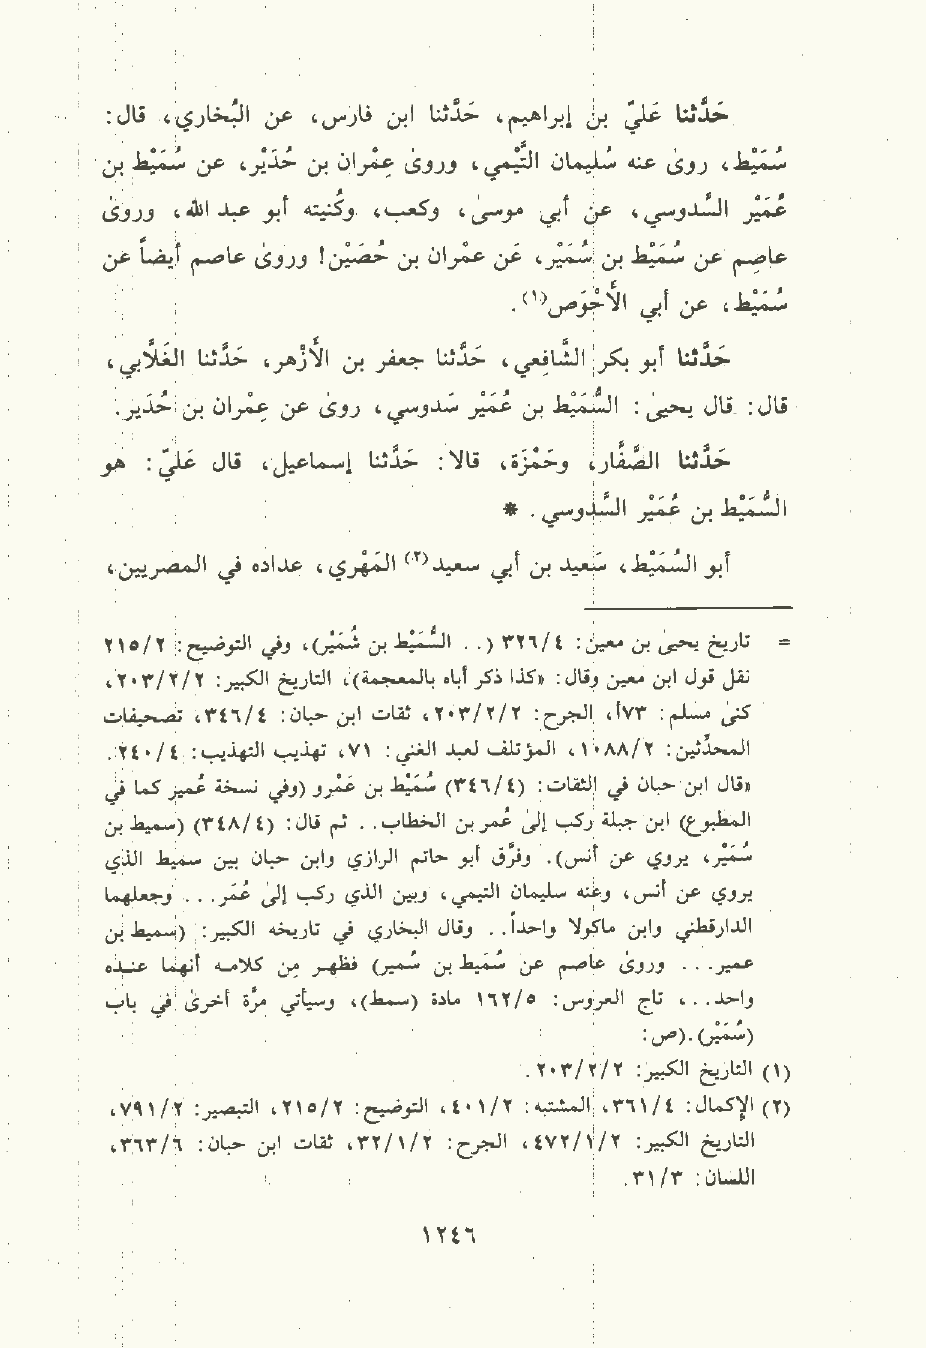 حَدَّثنا عَليّ بن إبراهيم، حَدَّثنا ابن فارس، عن البُخاري، قال:
سُمَيْط، روى عنه سُليمان التَّيْمي، وروى عِمْران بن حُدَيْر، عن سُمَيْط بن
عُمَيْر السَّدوسي، عن أبي موسى، وكعب، وكُنيته أبو عبد الله، وروى
عاصِم عن سُمَيْط بن سُمَيْر، عَن عمْران بن حُصَيْن! وروى عاصم أيضاً عن
سُمَيْط، عن أبي الأَحْوَص(١).
حَدَّثنا أبو بكر الشَّافِعي، حَدَّثنا جعفر بن الأَزْهر، حَدَّثنا الغَلَّابي،
قال: قال يحيىٰ: السُّمَيْط بن عُمَيْر سَدوسي، روى عن عِمْران بن حُدَير.
حَدَّثنا الصَّفَّار، وحَمْزَة، قالا: حَدَّثنا إسماعيل، قال عَليّ: هو
السُّمَيْط بن عُمَيْر السَّدوسي. *
أبو السُّمَيْط، سَعيد بن أبي سعيد(٢) المَهْري، عداده في المصريين،
= تاريخ يحيىٰ بن معين: ٣٢٦/٤ (.. السُّمَيْط بن سُمَيْر)، وفي التوضيح: ٢١٥/٢
نقل قول ابن معين وقال: «كذا ذكر أباه بالمعجمة)، التاريخ الكبير: ٢٠٣/٢/٢،
كنىٰ مسلم: ٧٣أ، الجرح: ٢٠٣/٢/٢، ثقات ابن حبان: ٣٤٦/٤، تصحيفات
المحدِّثين: ١٠٨٨/٢، المؤتلف لعبد الغني: ٧١، تهذيب التهذيب: ٢٤٠/٤.
«قال ابن حبان في الثقات: (٣٤٦/٤) سُمَيْط بن عَمْرو (وفي نسخة عُمير كما في
المطبوع) ابن جبلة ركب إلىٰ عُمر بن الخطاب.. ثم قال: (٣٤٨/٤) (سميط بن
سُمَيْر، يروي عن أنس). وفرَّق أبو حاتم الرازي وابن حبان بين سميط الذي
يروي عن أنس، وعنه سليمان التيمي، وبين الذي ركب إلىٰ عُمَر... وجعلهما
الدارقطني وابن ماكولا واحداً.. وقال البخاري في تاريخه الكبير: (سميط بن
عمير... وروىٰ عاصم عن سُمَيط بن سُمير) فظهر من كلامه أنهما عنده
واحد...، تاج العروس: ١٦٢/٥ مادة (سمط)، وسيأتي مرَّة أخرىٰ في باب
(سُمَيْر).(ص:
(١) التاريخ الكبير: ٢٠٣/٢/٢.
(٢) الإكمال: ٣٦١/٤، المشتبه: ٤٠١/٢، التوضيح: ٢١٥/٢، التبصير: ٧٩١/٢،
التاريخ الكبير: ٤٧٢/١/٢، الجرح: ٣٢/١/٢، ثقات ابن حبان: ٣٦٣/٦،
اللسان: ٣١/٣.
١٢٤٦